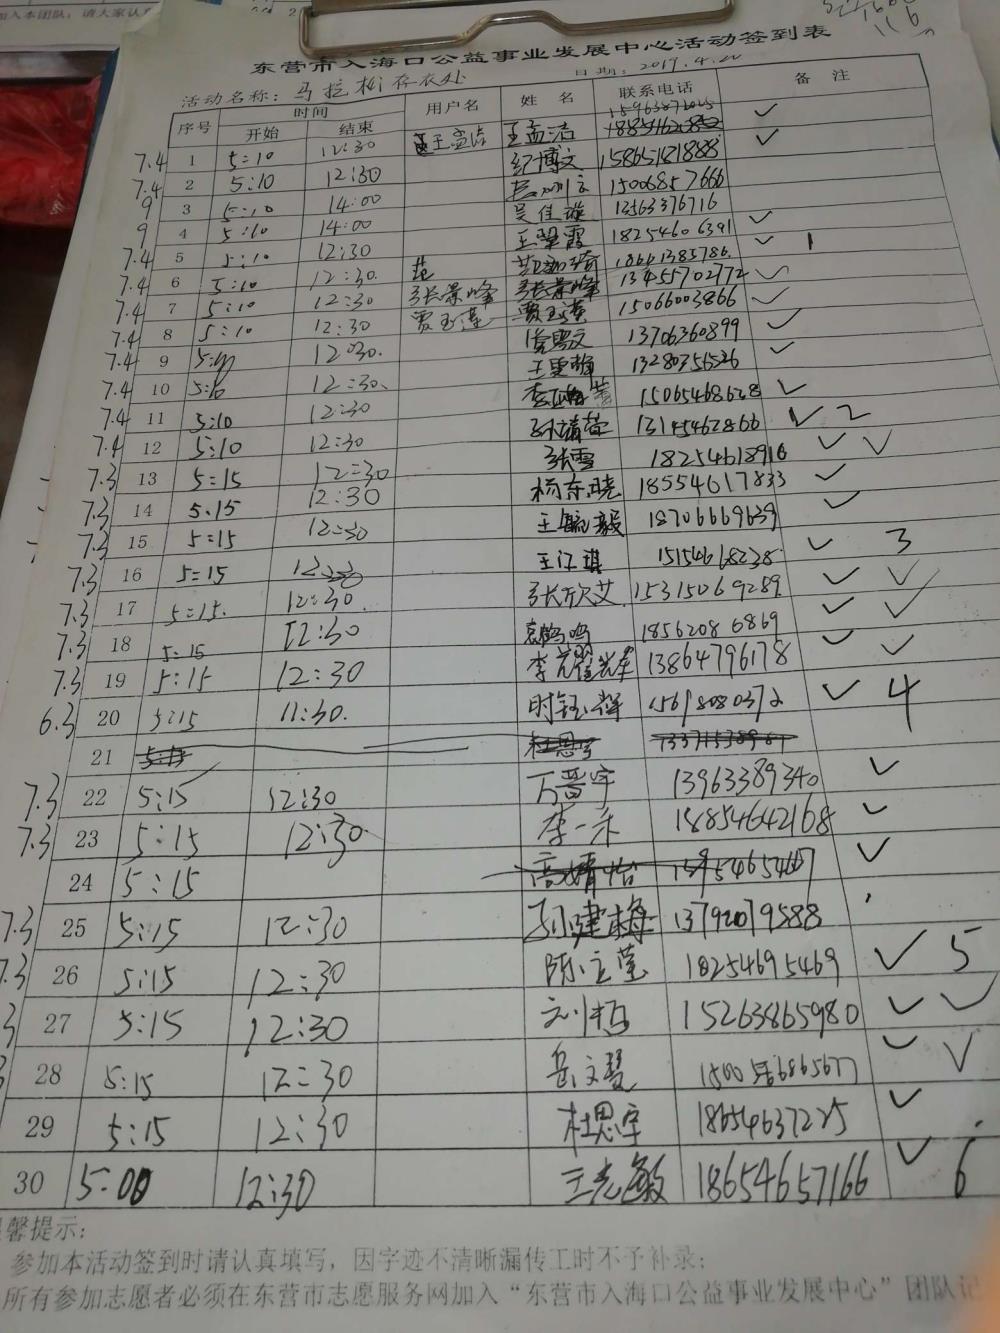 加入本团队，请大家认真
116
东营市入海口公益事业发展中心活动签到表
活动名称：马拉松存衣处 日期：2019.4.20
序号 时间 用户名 姓名 联系电话 备注
开始 结束
7.4 1 5:10 12:30 王孟洁 王孟洁 ✓
7.4 2 5:10 12:30 纪博文 15865181888 ✓
9 3 5:10 14:00 15006857666
9 4 5:10 14:00 吴佳璇 13563376716
7.4 5 5:10 12:30 王翠霞 18254606391 ✓
7.4 6 5:10 12:30. 范 18641385786. ✓ 1
7.4 7 5:10 12:30 张景峰 张景峰 13455702772 ✓
7.4 8 5:10 12:30 贾玉莲 贾玉莲 15066003866 ✓
7.4 9 5:10 12:30. 13706360899 ✓
7.4 10 5:10 12:30. 13280356526 ✓
7.4 11 5:10 12:30 15065468628 ✓
7.4 12 5:10 12:30 孙靖萱 13145462866 ✓ 2
7.3 13 5:15 12:30 张雪 18254618916 ✓ ✓
7.3 14 5:15 12:30 杨东晓 18554617833 ✓
7.3 15 5:15 12:30 王毓毅 18706669639 ✓
7.3 16 5:15 12:30 15154668238 ✓ 3
7.3 17 5:15. 12:30. 张欣艾 15315069289 ✓ ✓
7.3 18 5:15 12:30 18562086869 ✓ ✓
7.3 19 5:15 12:30 13864796178 ✓ ✓
6.3 20 5:15 11:30. 时钰辉 15698080372 ✓ 4
21 5:15 杜思宇
7.3 22 5:15 12:30 万晋宇 13963389340 ✓
7.3 23 5:15 12:30 李一禾 18854642168 ✓
24 5:15 高婧怡 ✓
7.3 25 5:15 12:30 孙建梅 13792079588
7.3 26 5:15 12:30 陈立莹 18254695469 ✓ 5
3 27 5:15 12:30 刘哲 15263865980 ✓ ✓
28 5:15 12:30 岳文 ✓ ✓
29 5:15 12:30 杜思宇 18654637225 ✓
30 5:00 12:30 王志敏 18654657166 ✓ 6
馨提示：
参加本活动签到时请认真填写，因字迹不清晰漏传工时不予补录；
所有参加志愿者必须在东营市志愿服务网加入“东营市入海口公益事业发展中心”团队记